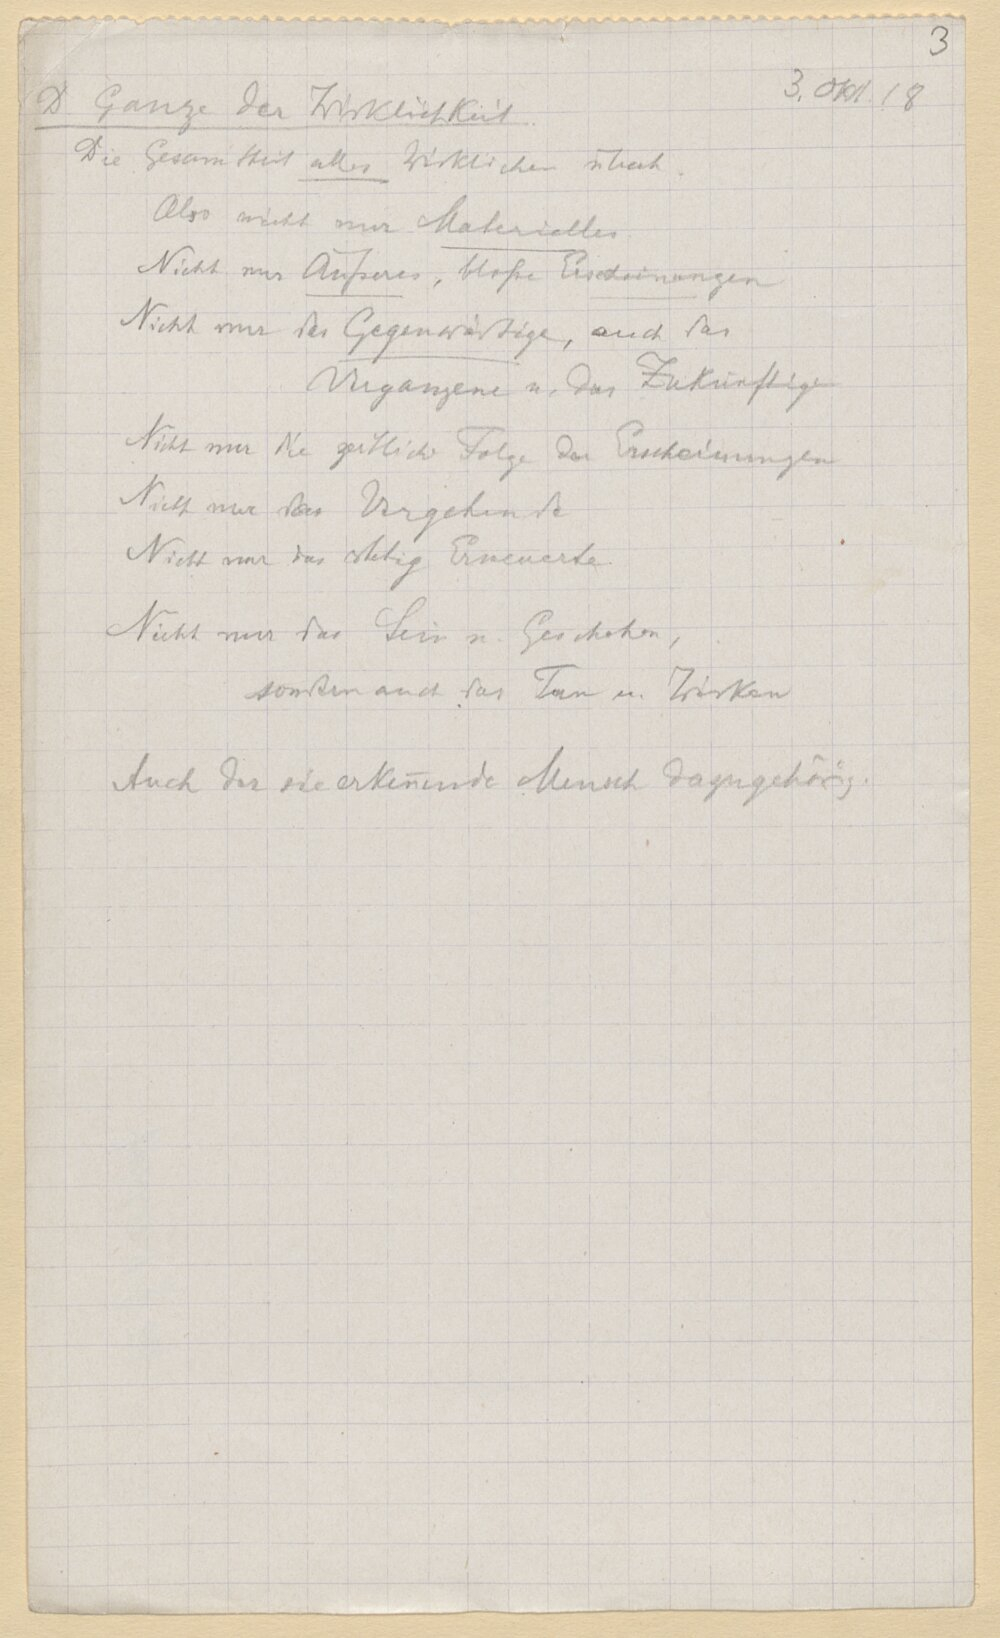 3
3. Okt. 18
D Ganze der Wirklichkeit.
Die Gesamtheit alles Wirklichen überh.
Also nicht nur Materielles
Nicht nur Äußeres, bloße Erscheinungen
Nicht nur das Gegenwärtige, auch das
Vergangene u. das Zukünftige
Nicht nur die zeitliche Folge der Erscheinungen
Nicht nur das Vergehende
Nicht nur das stetig Erneuerte.
Nicht nur das Sein u. Geschehen,
sondern auch das Tun u. Wirken
Auch der sie erkennende Mensch dazugehörig.